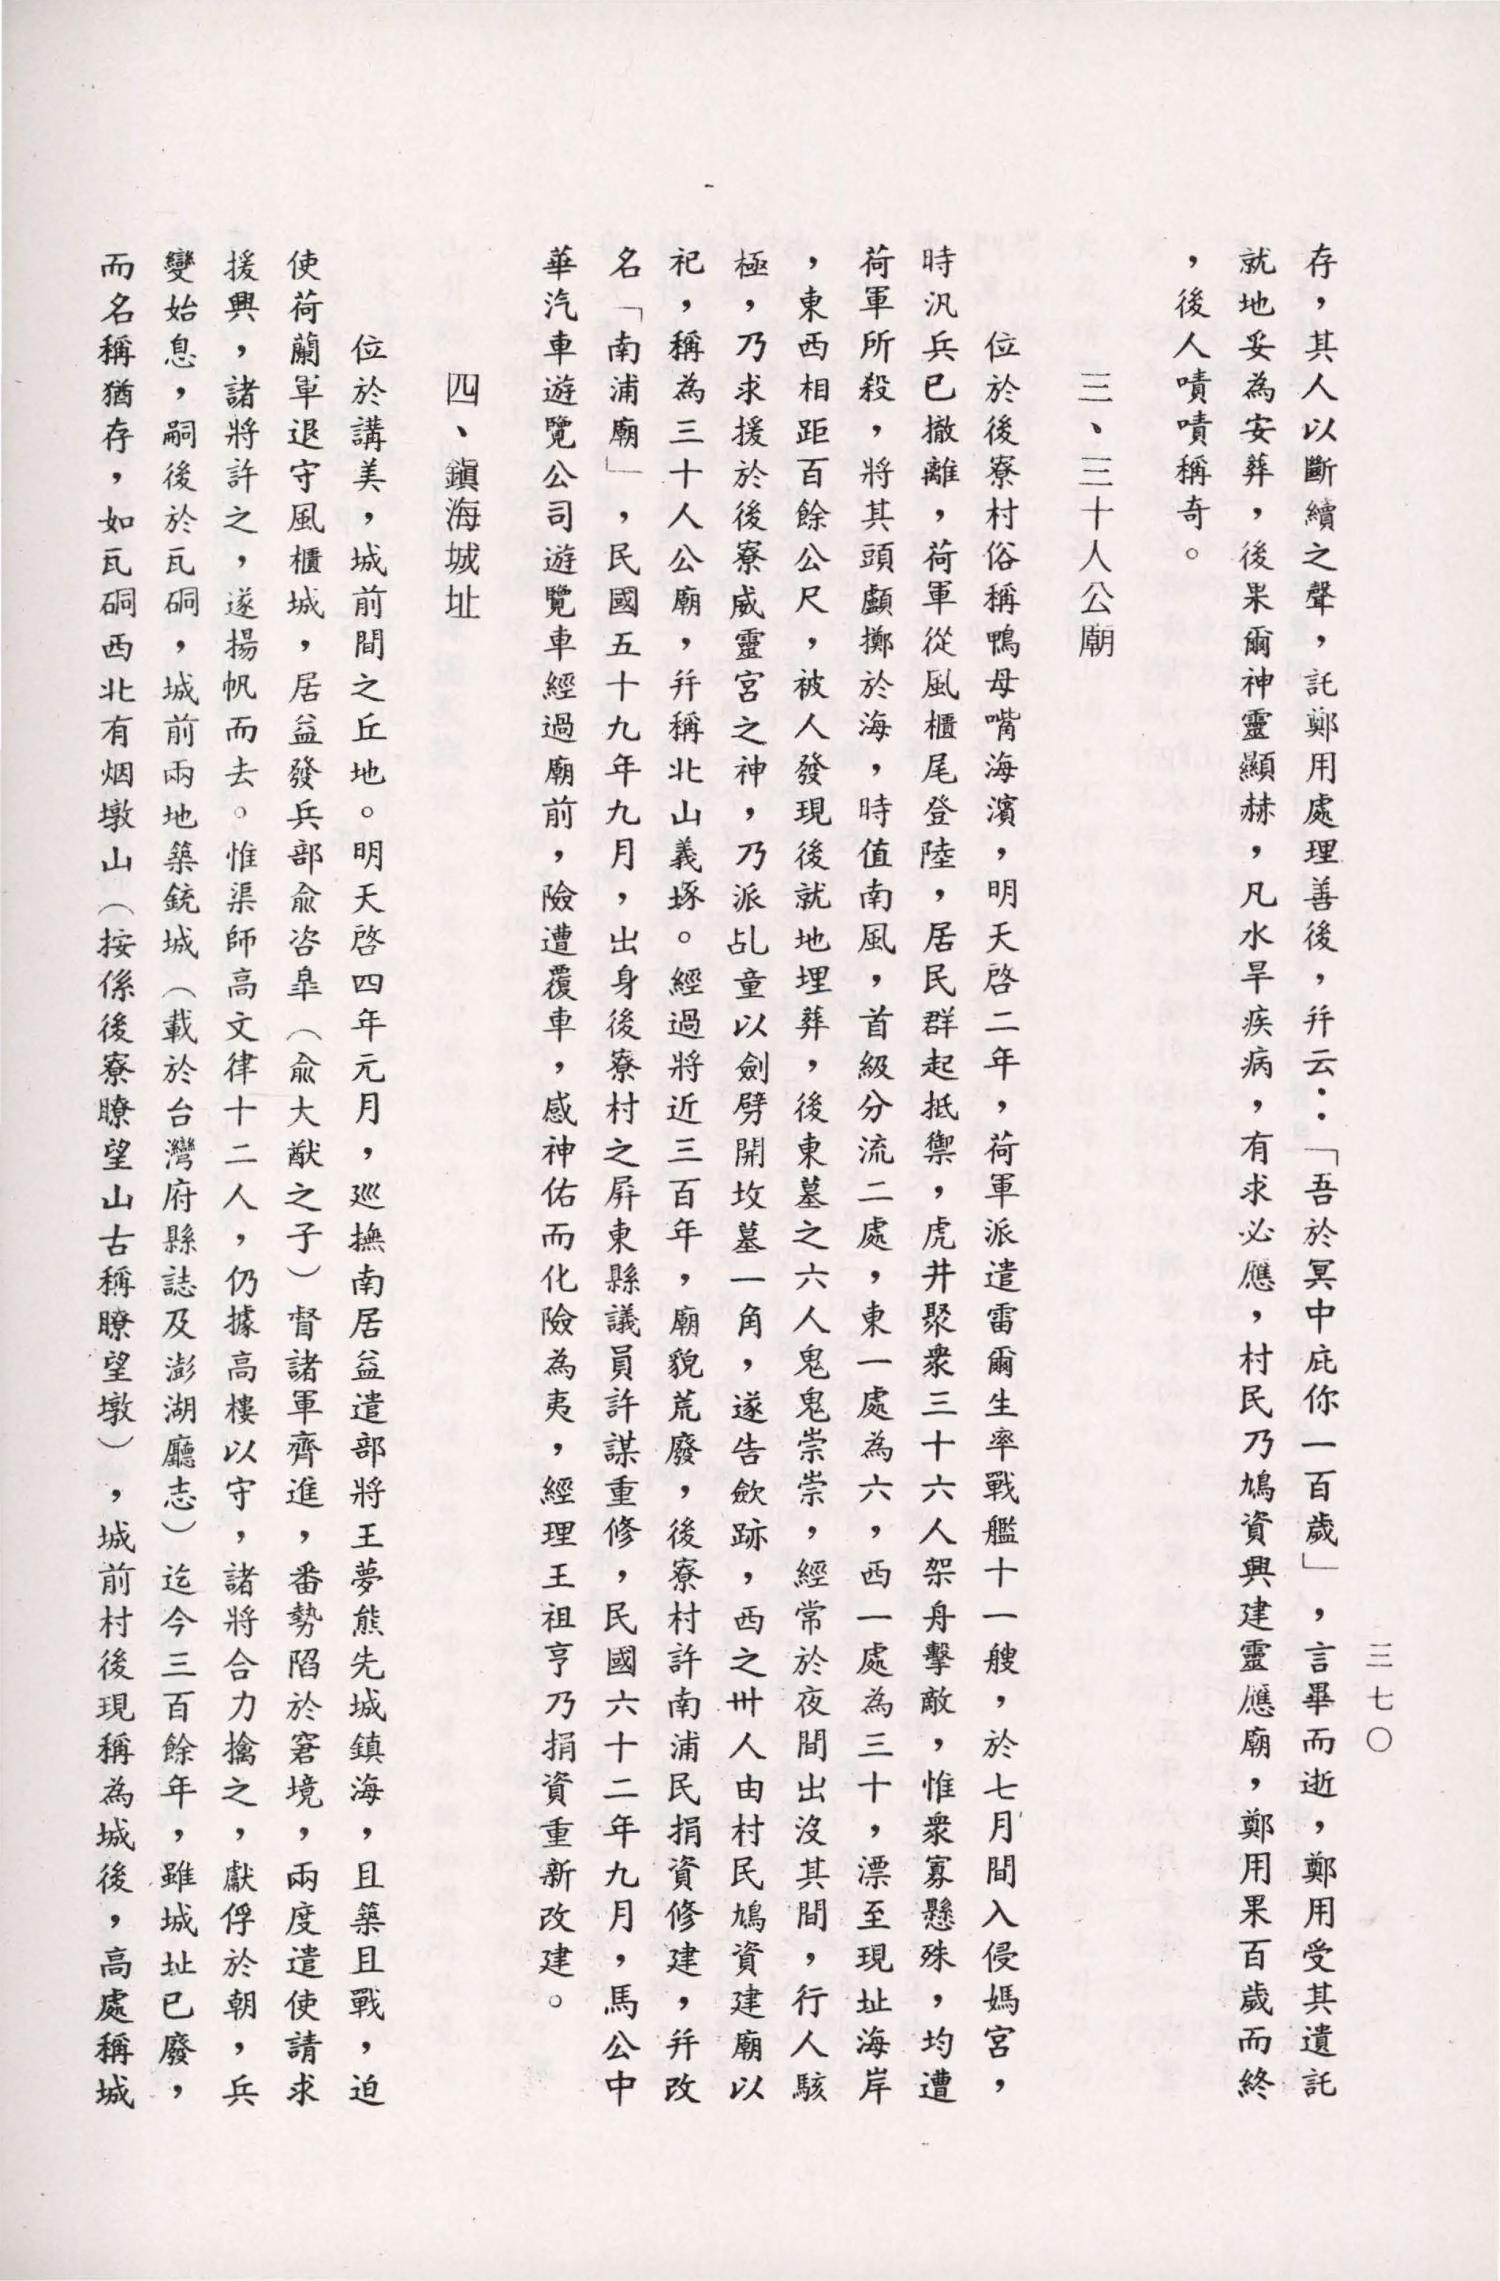 三七〇
存，其人以斷續之聲，託鄭用處理善後，幷云：「吾於冥中庇你一百歲」，言畢而逝，鄭用受其遺託
就地妥為安葬，後果爾神靈顯赫，凡水旱疾病，有求必應，村民乃鳩資興建靈應廟，鄭用果百歲而終
，後人嘖嘖稱奇。
三、三十人公廟
位於後寮村俗稱鴨母嘴海濱，明天啓二年，荷軍派遣雷爾生率戰艦十一艘，於七月間入侵媽宮，
時汛兵已撤離，荷軍從風櫃尾登陸，居民群起抵禦，虎井聚衆三十六人架舟擊敵，惟衆寡懸殊，均遭
荷軍所殺，將其頭顱擲於海，時值南風，首級分流二處，東一處為六，西一處為三十，漂至現址海岸
，東西相距百餘公尺，被人發現後就地埋葬，後東墓之六人鬼鬼崇崇，經常於夜間出沒其間，行人駭
極，乃求援於後寮威靈宮之神，乃派乩童以劍劈開坟墓一角，遂告歛跡，西之卅人由村民鳩資建廟以
祀，稱為三十人公廟，幷稱北山義塚。經過將近三百年，廟貌荒廢，後寮村許南浦民捐資修建，幷改
名「南浦廟」，民國五十九年九月，出身後寮村之屏東縣議員許謀重修，民國六十二年九月，馬公中
華汽車遊覽公司遊覽車經過廟前，險遭覆車，感神佑而化險為夷，經理王祖亨乃捐資重新改建。
四、鎭海城址
位於講美，城前間之丘地。明天啓四年元月，巡撫南居益遣部將王夢熊先城鎮海，且築且戰，迫
使荷蘭軍退守風櫃城，居益發兵部兪咨臯（兪大猷之子）督諸軍齊進，番勢陷於窘境，兩度遣使請求
援興，諸將許之，遂揚帆而去。惟渠師高文律十二人，仍據高樓以守，諸將合力擒之，獻俘於朝，兵
變始息，嗣後於瓦硐，城前兩地築銃城（載於台灣府縣誌及澎湖廳志）迄今三百餘年，雖城址已廢，
而名稱猶存，如瓦硐西北有烟墩山（按係後寮瞭望山古稱瞭望墩），城前村後現稱為城後，高處稱城